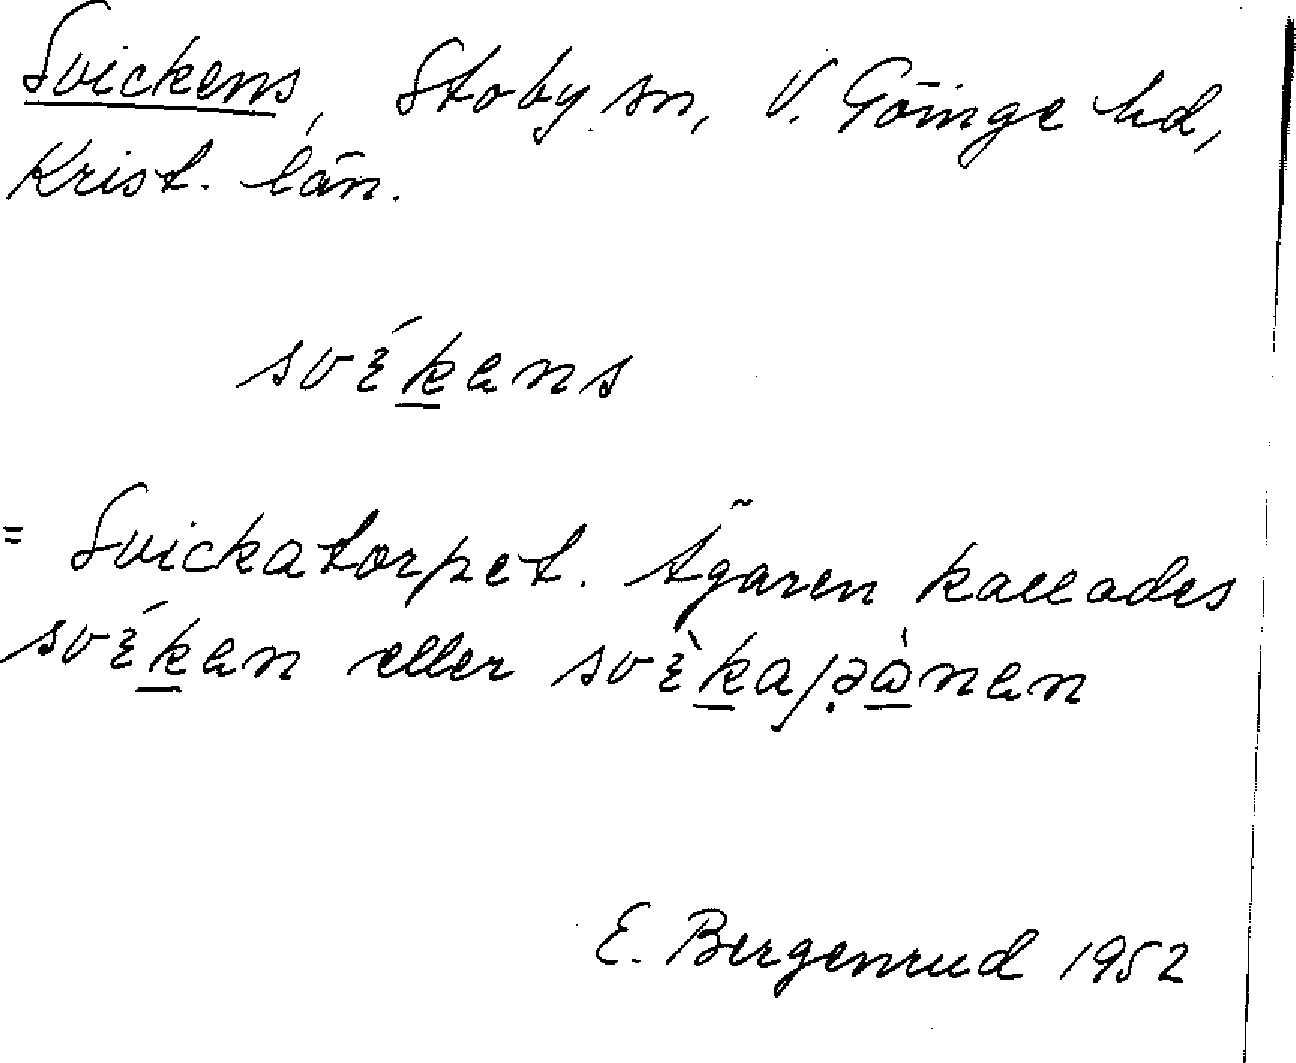 Svickens, Stoby sn, V. Göinge hd,
Krist. län.
svɛ́kans
= Svickatorpet. Ägaren kallades
svɛ́kan eller
E. Bergenrud 1952